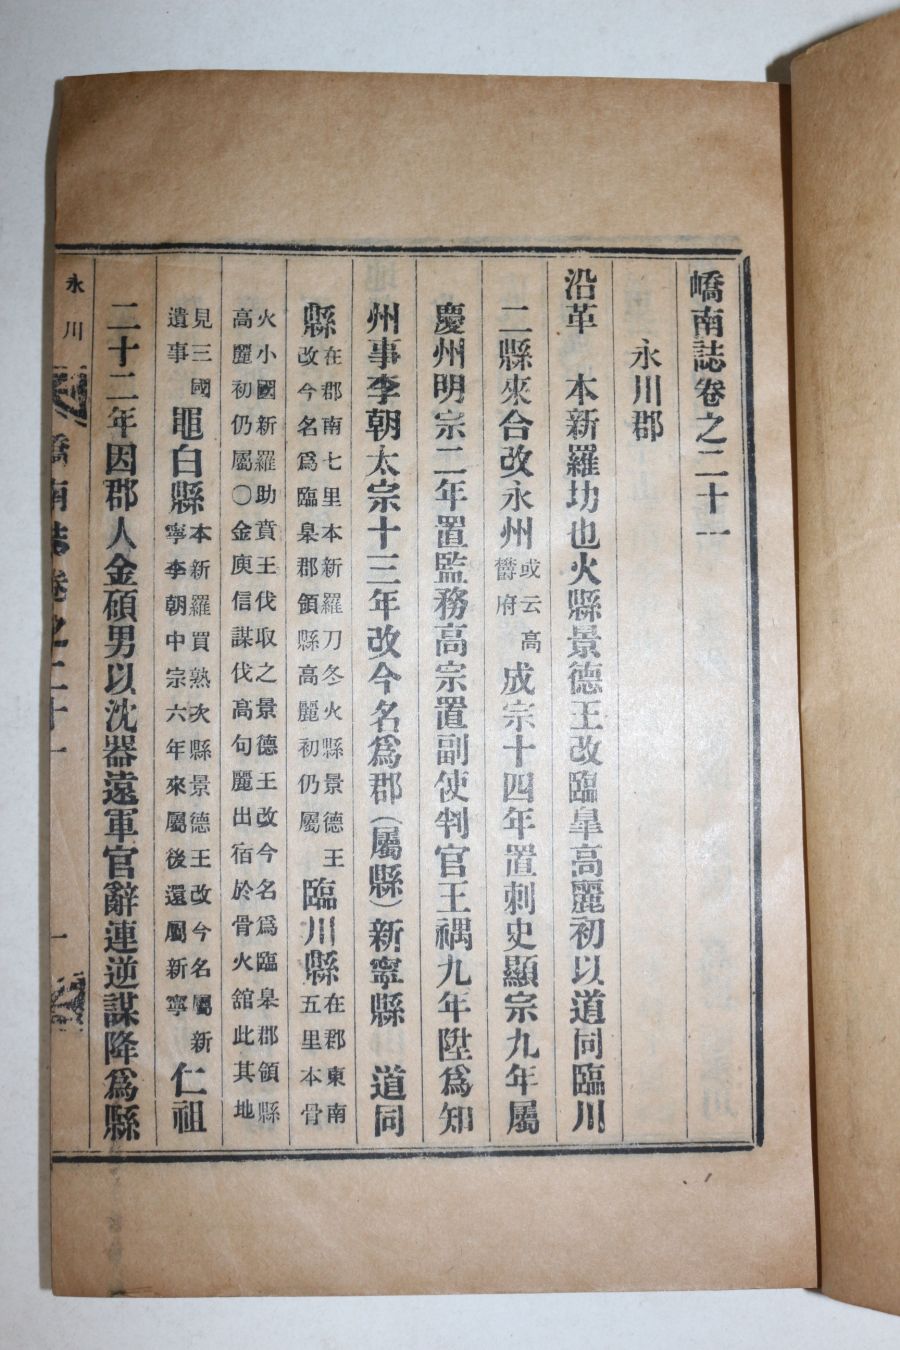 嶠南誌卷之二十一
永川郡
沿革 本新羅切也火縣景德王改臨皐高麗初以道同臨川
二縣來合改永州 或云高
欝府 成宗十四年置刺史顯宗九年屬
慶州明宗二年置監務高宗置副使判官王禑九年陞爲知
州事李朝太宗十三年改今名爲郡(屬縣)新寧縣 道同
縣 在郡南七里本新羅刀冬火縣景德王
改今名爲臨皐郡領縣高麗初仍屬 臨川縣 在郡東南
五里本骨
火小國新羅助賁王伐取之景德王改今名爲臨皋郡領縣
高麗初仍屬○金庾信謀伐高句麗出宿於骨火舘此其地
見三國
遺事 黽白縣 本新羅買熱次縣景德王改今名屬新
寧李朝中宗六年來屬後還屬新寧 仁祖
二十二年因郡人金碩男以沈器遠軍官辭連逆謀降爲縣
永川 嶠南誌卷之二十一 一